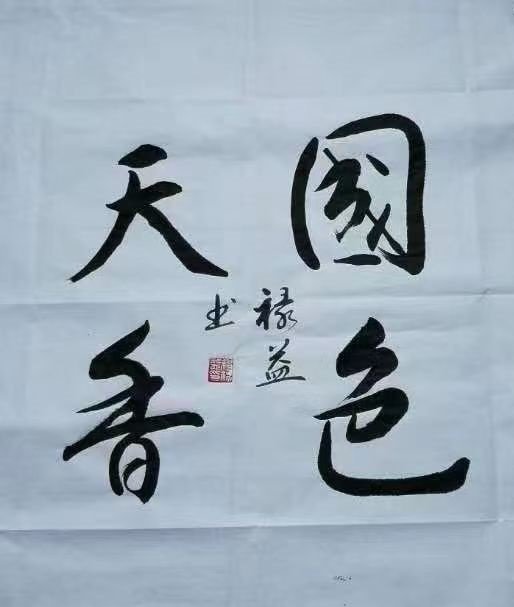 國色
天香
禄益
书